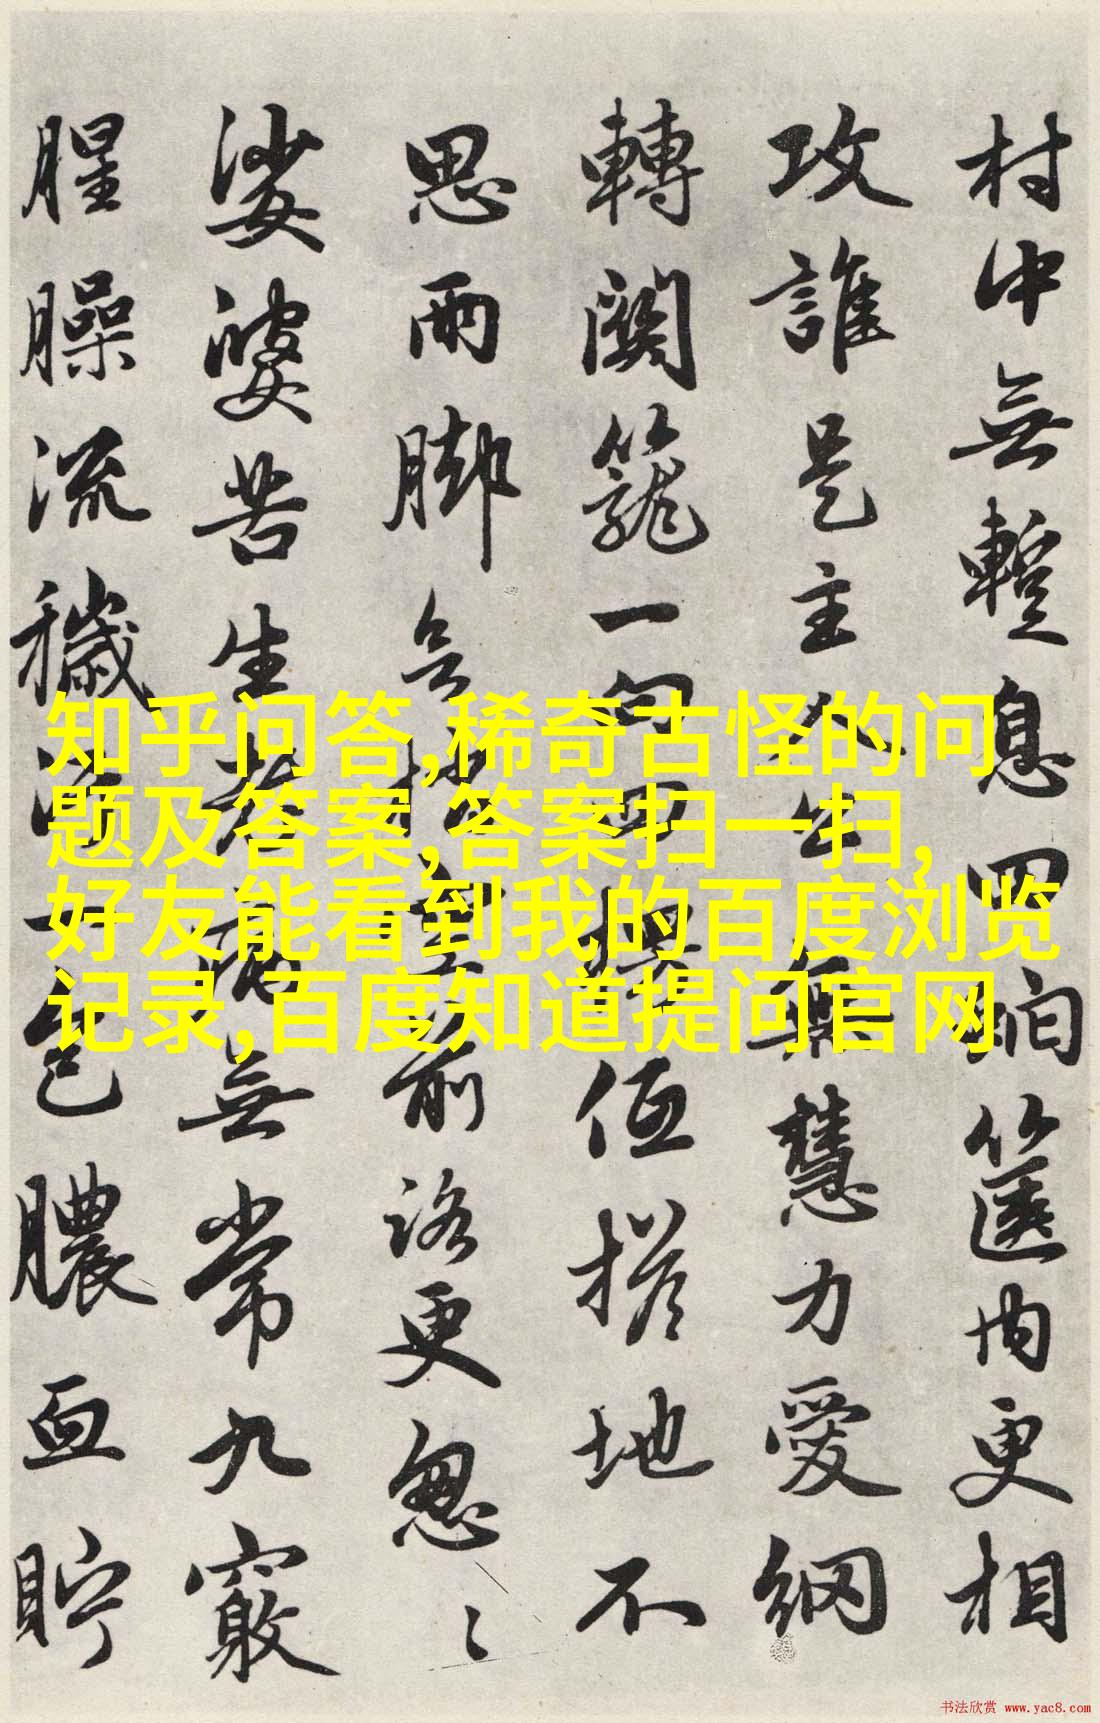 村中無蹔息四蛇篋内更相
攻誰是主人公無慧力愛網
轉關籠一句四恒擔地不
思兩脚無前路更忽〻
娑婆苦生老病無常九竅
腥臊流穢一包膿血貯
知乎问答,稀奇古怪的问
题及答案,答案扫一扫,
好友能看到我的百度浏览
记录,百度知道提问官网
书法欣赏 www.yac8.com